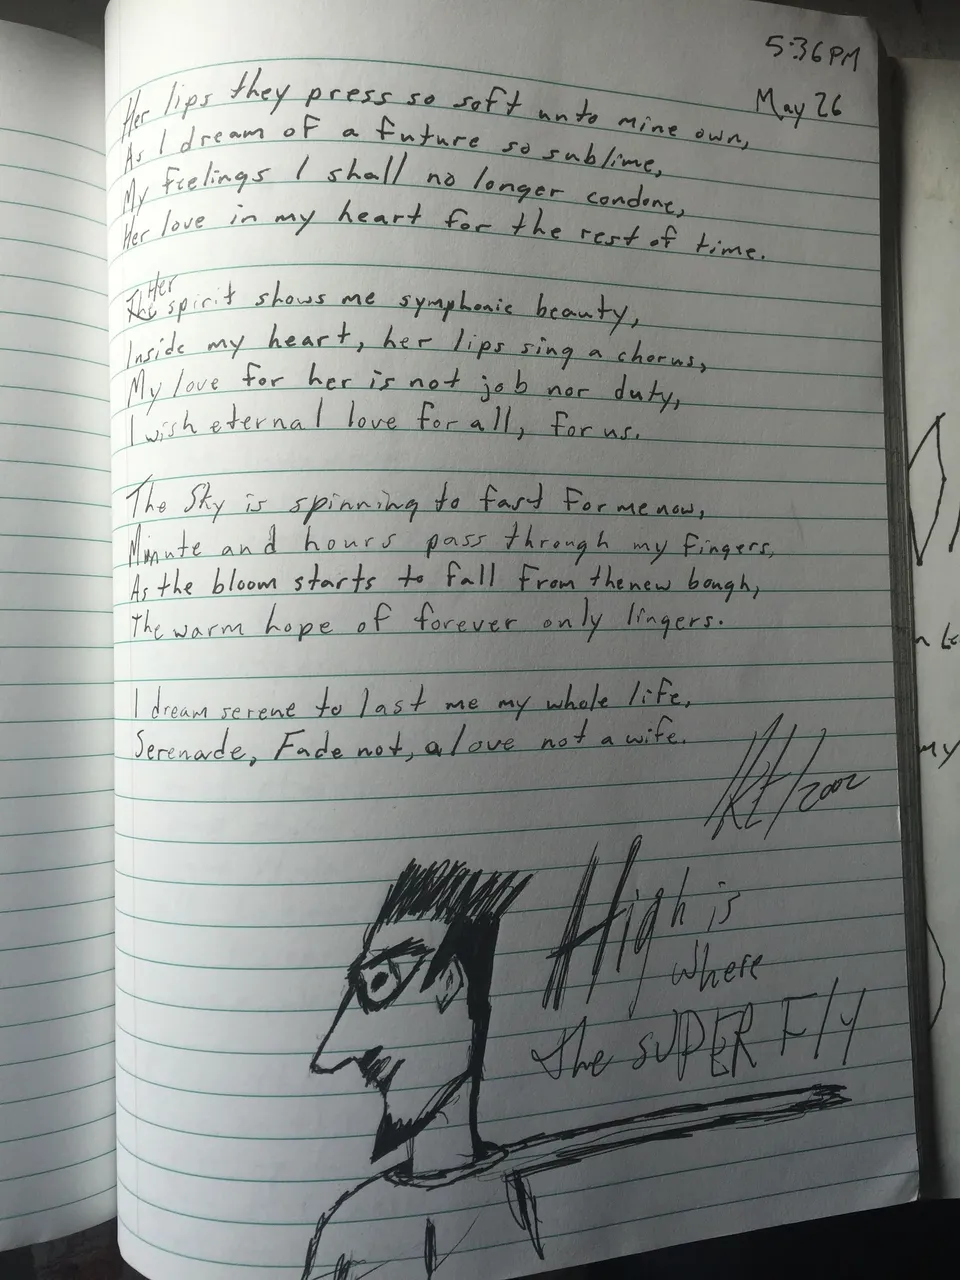 5:36PM
May 26
Her lips they press so soft unto mine own,
As I dream of a future so sublime,
My feelings I shall no longer condone,
Her love in my heart for the rest of time.
Her
The spirit shows me symphonic beauty,
Inside my heart, her lips sing a chorus,
My love for her is not job nor duty,
I wish eternal love for all, for us.
The Sky is spinning to fast for me now,
Minute and hours pass through my fingers,
As the bloom starts to fall from the new bough,
The warm hope of forever only lingers.
I dream serene to last me my whole life,
Serenade, Fade not, a love not a wife.
2002
High is
where
the SUPER Fly
my